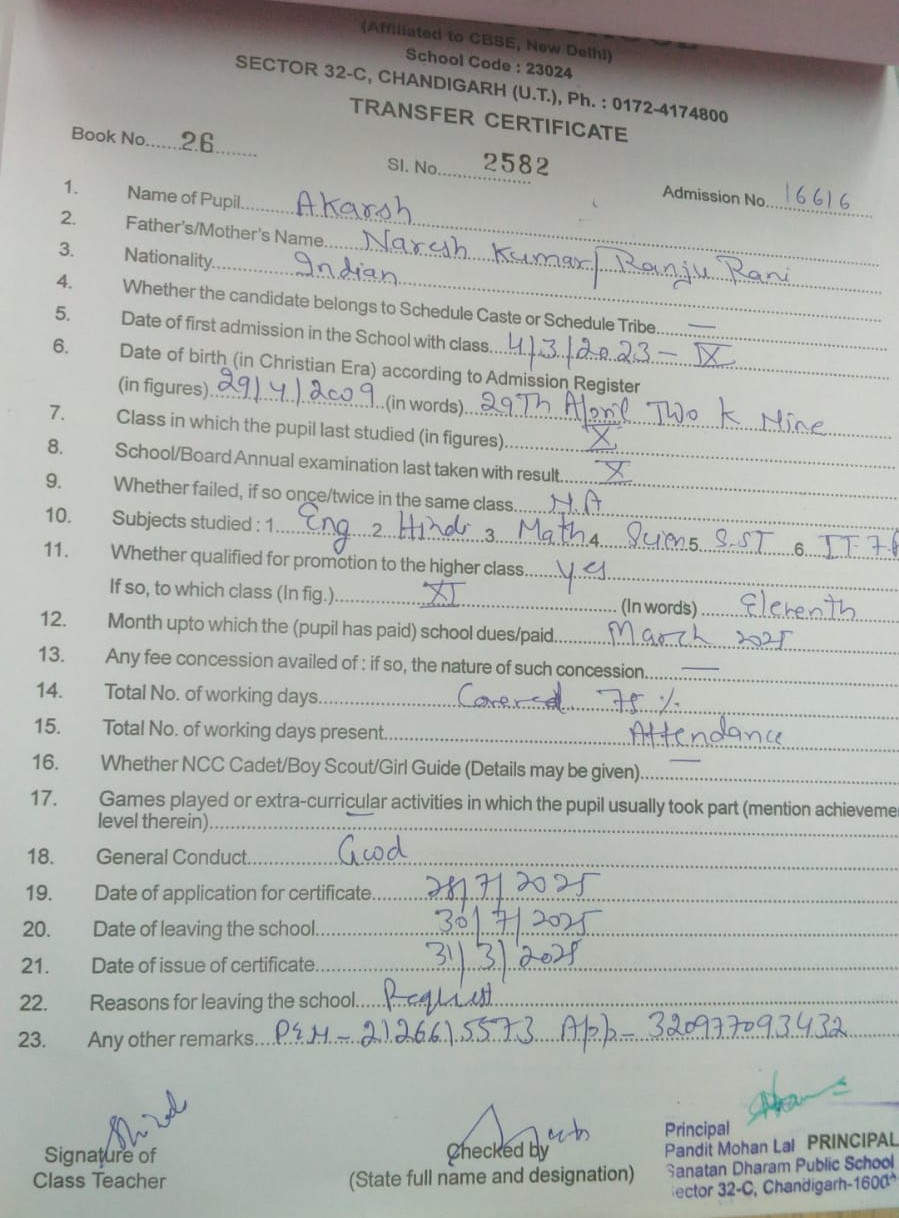 (Affiliated to CBSE, New Delhi)
School Code : 23024
SECTOR 32-C, CHANDIGARH (U.T.), Ph. : 0172-4174800
TRANSFER CERTIFICATE
Book No......26........
Sl. No.......2582
Admission No....16616
1. Name of Pupil.........Akarsh
2. Father's/Mother's Name.....Naresh Kumar/Ranju Rani
3. Nationality............Indian
4. Whether the candidate belongs to Schedule Caste or Schedule Tribe.....—
5. Date of first admission in the School with class...4/3/2023 - IX
6. Date of birth (in Christian Era) according to Admission Register
(in figures)..29/4/2009..(in words)..29Th April Two K Nine
7. Class in which the pupil last studied (in figures)...........X
8. School/Board Annual examination last taken with result......X
9. Whether failed, if so once/twice in the same class.....N.A
10. Subjects studied : 1....Eng 2 Hindi 3 Math 4 Scien 5 S.ST 6 IT-
11. Whether qualified for promotion to the higher class....yes
If so, to which class (In fig.)..........XI.......... (In words) .....Eleventh
12. Month upto which the (pupil has paid) school dues/paid.......March 2025
13. Any fee concession availed of : if so, the nature of such concession.....—
14. Total No. of working days.............Covered 75 %
15. Total No. of working days present..........Attendance
16. Whether NCC Cadet/Boy Scout/Girl Guide (Details may be given).....—
17. Games played or extra-curricular activities in which the pupil usually took part (mention achieveme
level therein)......—
18. General Conduct.............Good
19. Date of application for certificate.......28/7/2025
20. Date of leaving the school...........30/7/2025
21. Date of issue of certificate..........31/3/2025
22. Reasons for leaving the school.....Request
23. Any other remarks...PEN - 2126615573 App - 320977093432
Signature of
Class Teacher
Checked by
(State full name and designation)
Principal PRINCIPAL
Pandit Mohan Lal
Sanatan Dharam Public School
ector 32-C, Chandigarh-1600